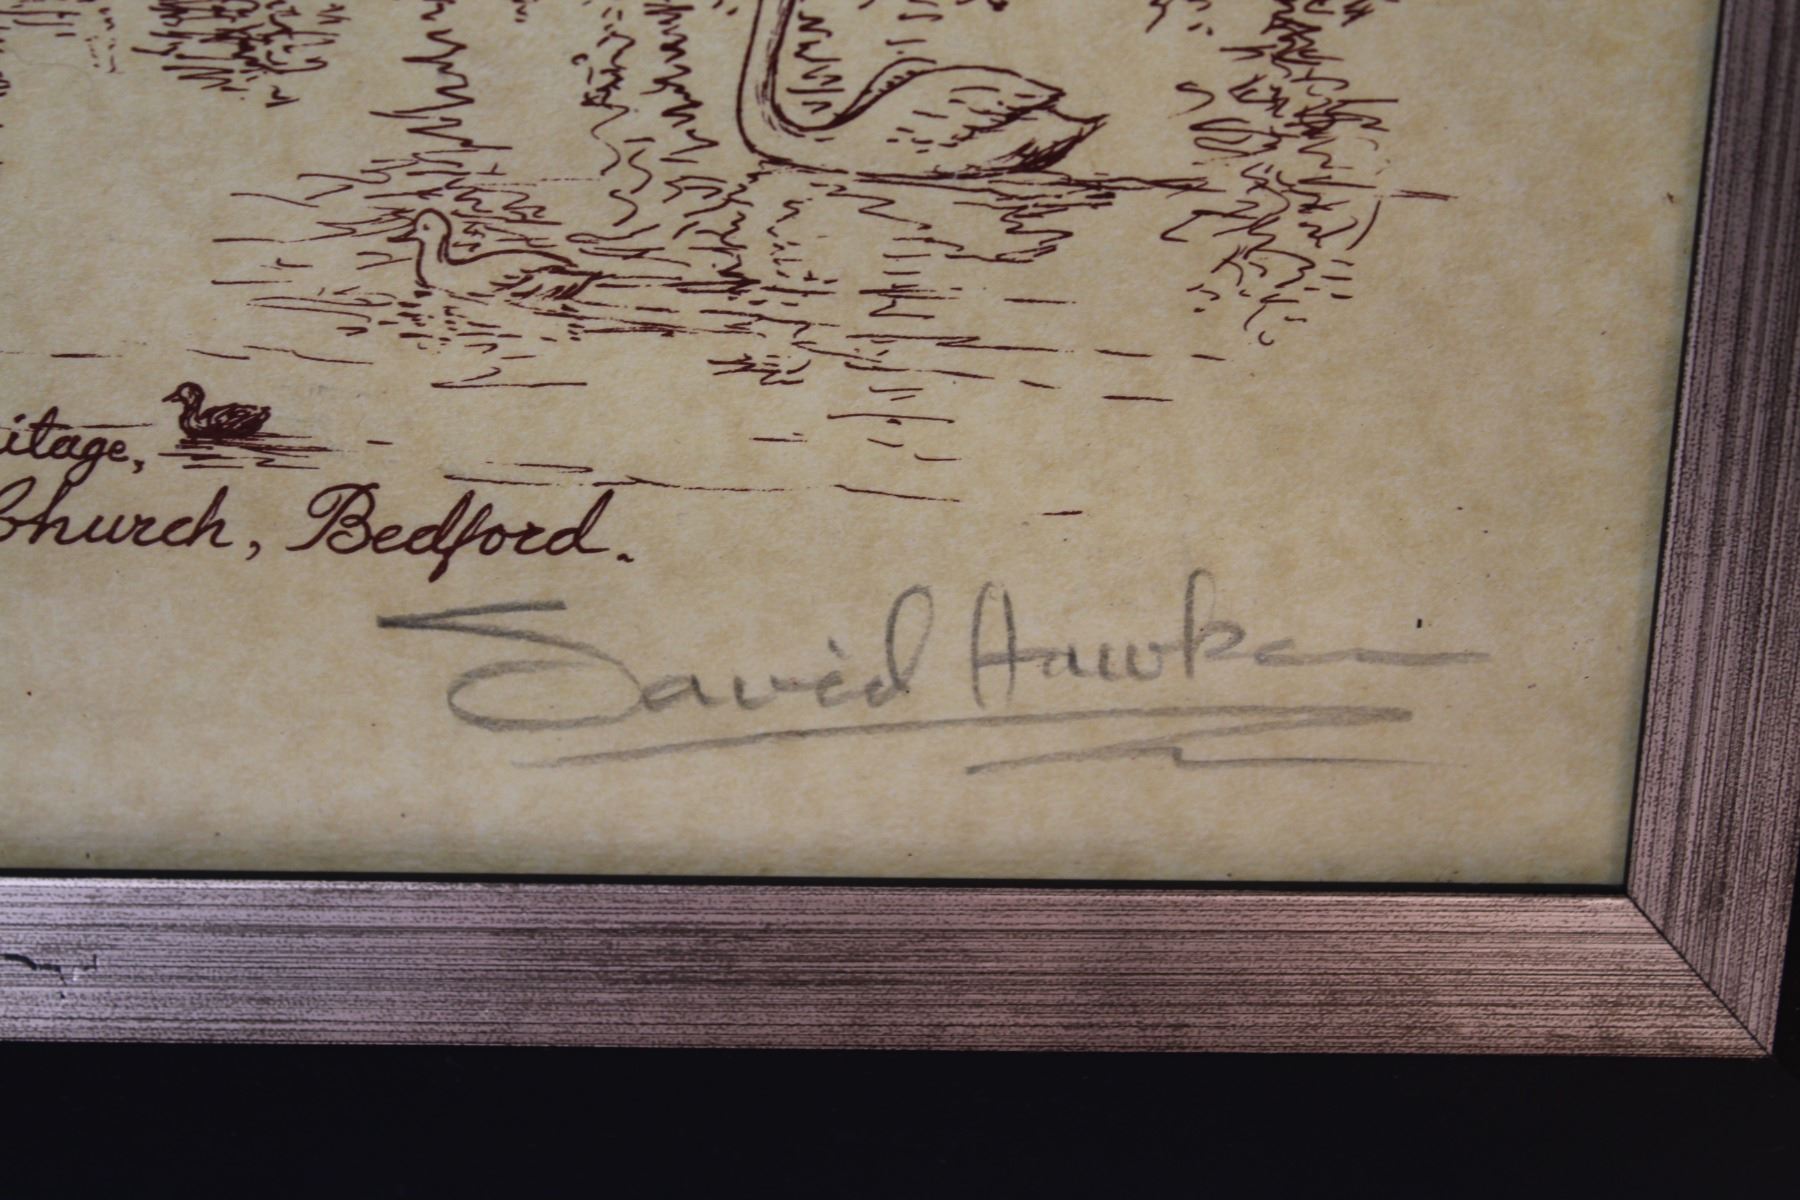 itage,
Church, Bedford.
David Hawken